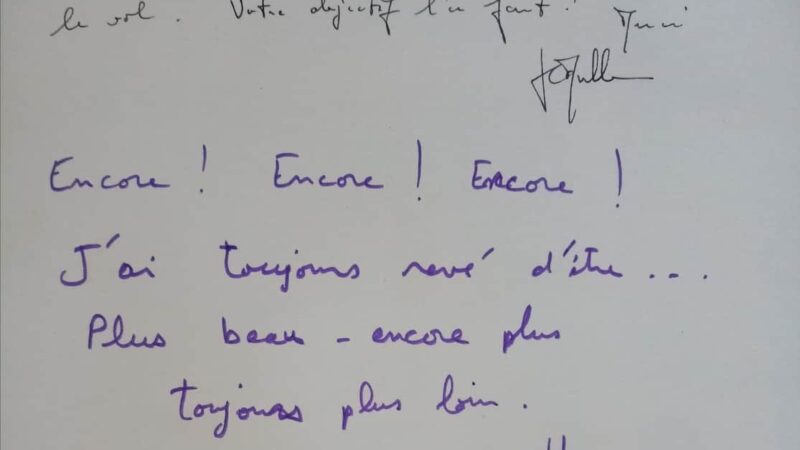 le vol. Votre objectif l'a fait! Merci
Encore ! Encore ! Encore !
J'ai toujours revé d'être ...
Plus beau - encore plus
toujours plus loin.